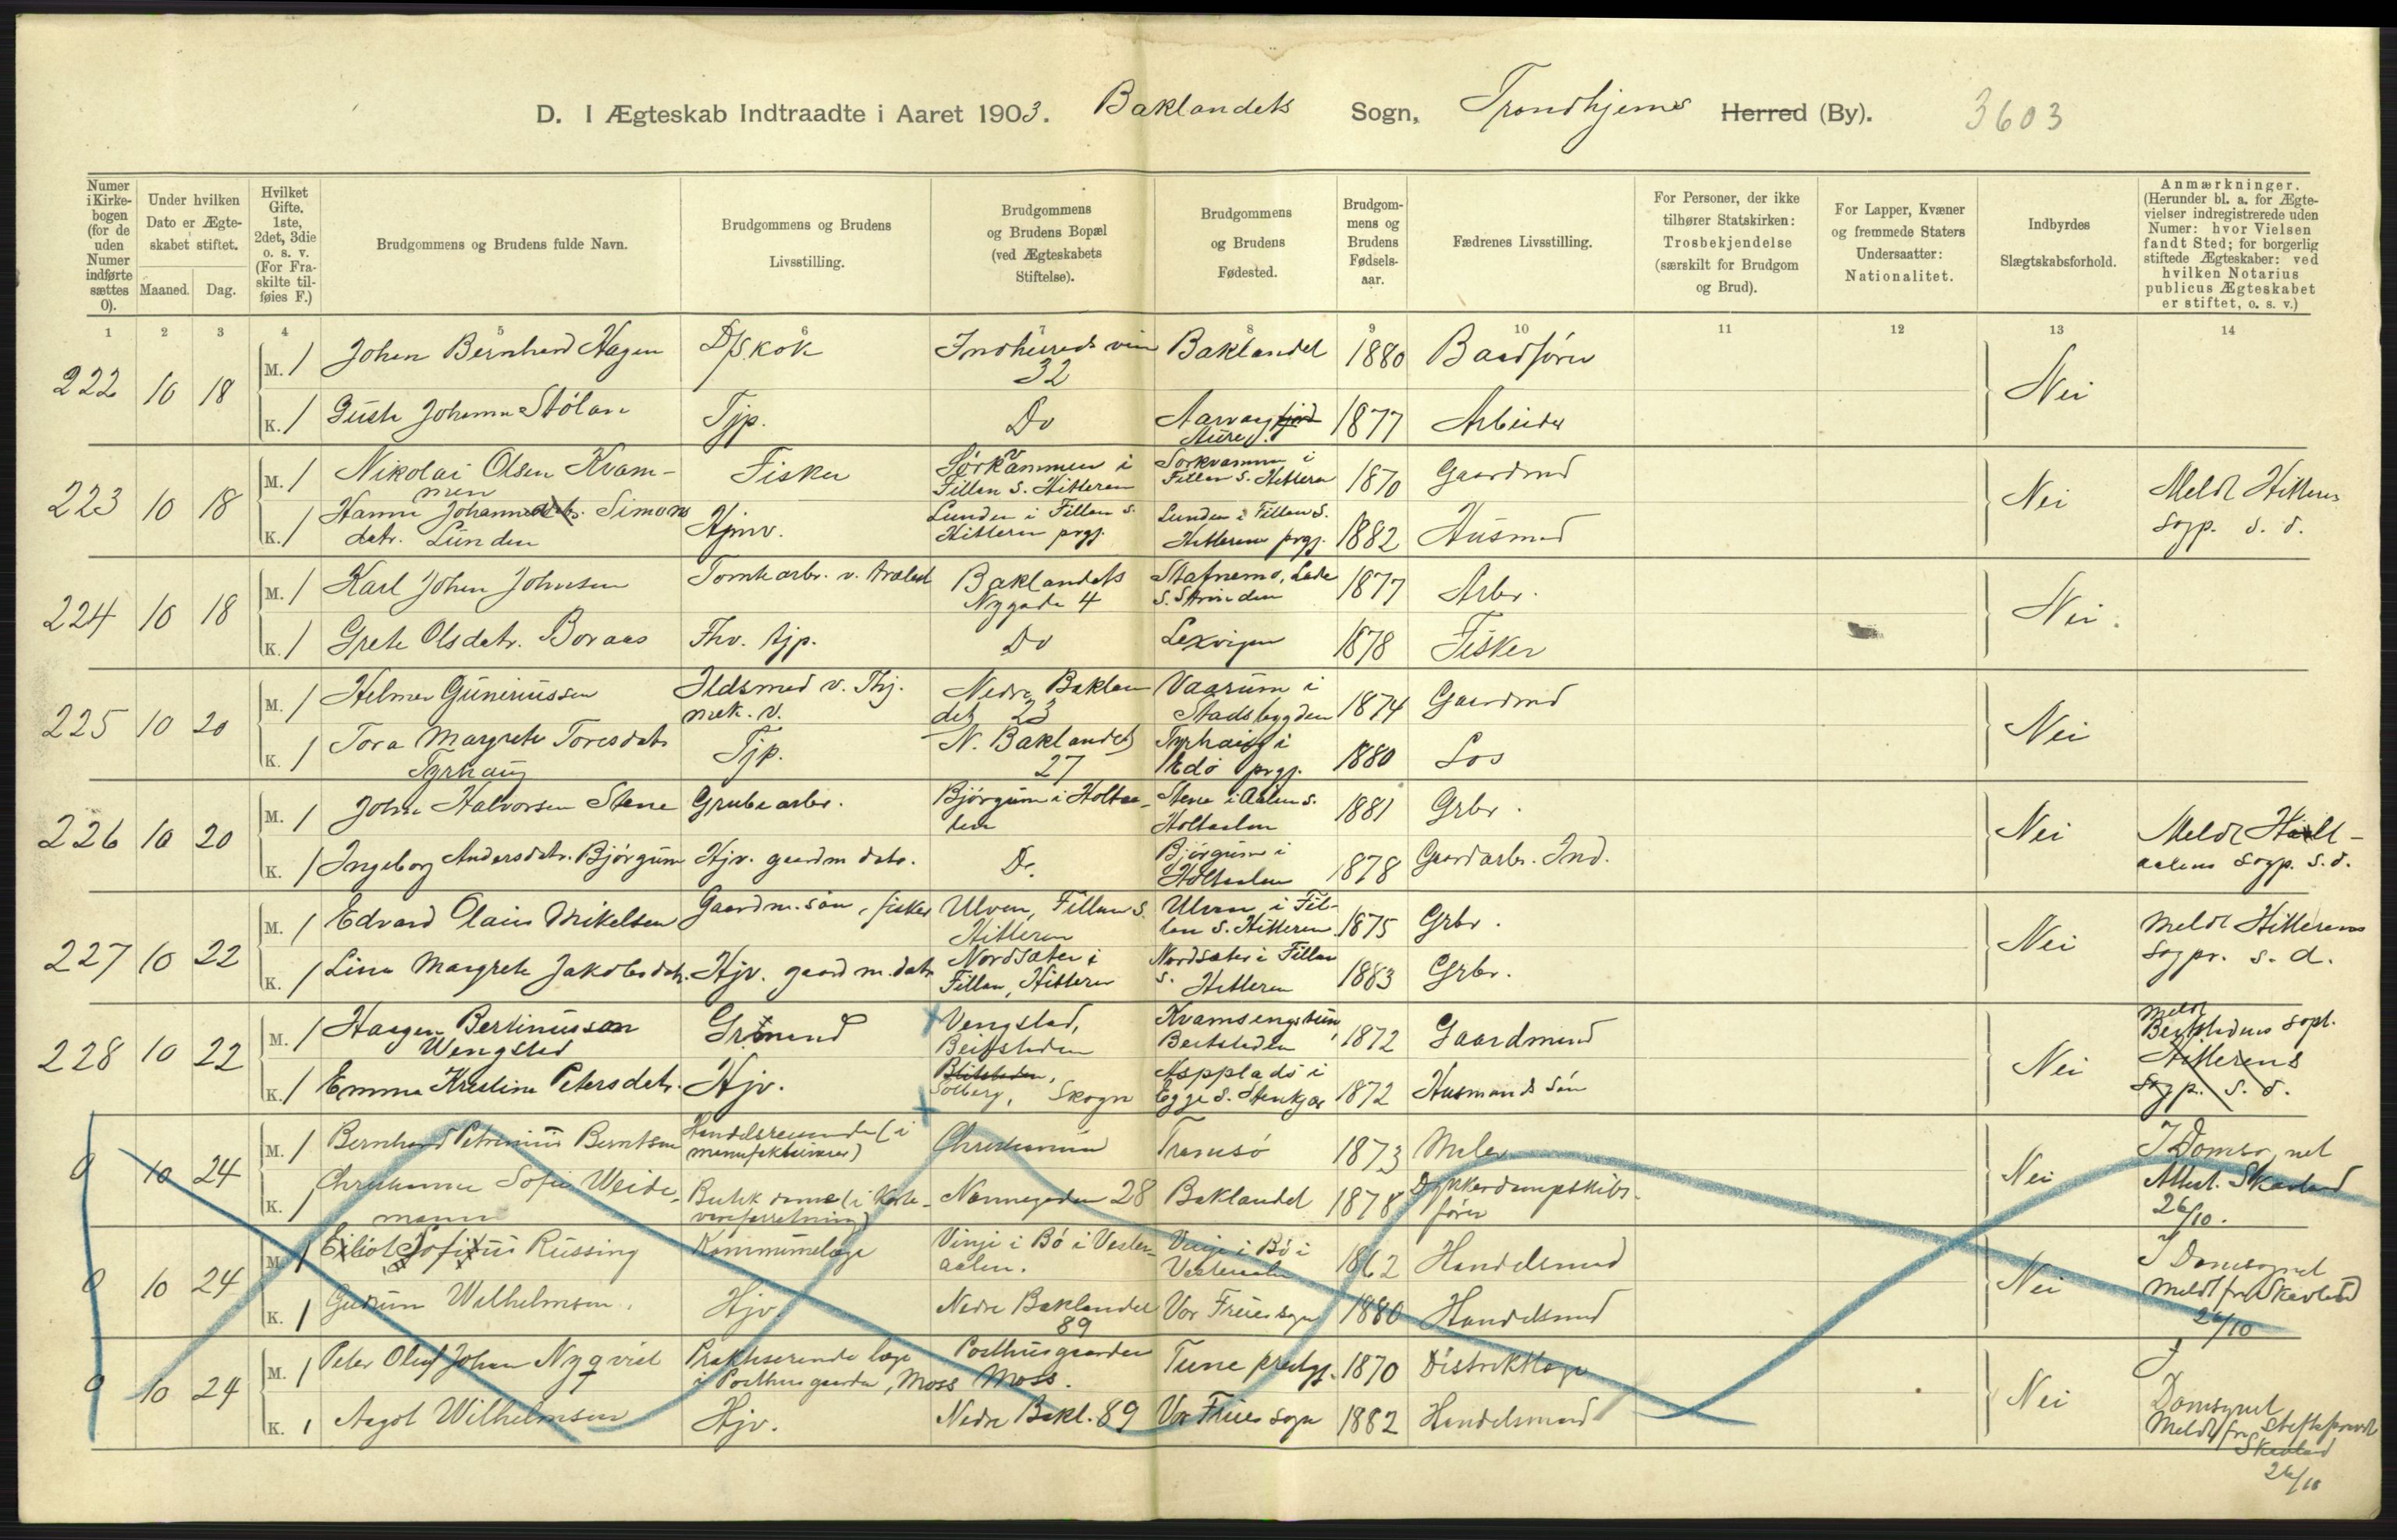 D. I Ægteskab Indtraadte i Aaret 1903. Baklandets Sogn, Trondhjems Herred (By). 3603
Numer i Kirke-bogen (for de uden Numer indførte sættes 0).
Under hvilken Dato er Ægte-skabet stiftet.
Maaned. Dag.
Hvilket Gifte. 1ste, 2det, 3die o. s. v. (For Fra-skilte til-føies F.)
Brudgommens og Brudens fulde Navn.
Brudgommens og Brudens Livsstilling.
Brudgommens og Brudens Bopæl (ved Ægteskabets Stiftelse).
Brudgommens og Brudens Fødested.
Brudgom-mens og Brudens Fødsels-aar.
Fædrenes Livsstilling.
For Personer, der ikke tilhører Statskirken: Trosbekjendelse (særskilt for Brudgom og Brud).
For Lapper, Kvæner og fremmede Staters Undersaatter: Nationalitet.
Indbyrdes Slægtskabsforhold.
Anmærkninger. (Herunder bl. a. for Ægte-vielser indregistrerede uden Numer: hvor Vielsen fandt Sted; for borgerlig stiftede Ægteskaber: ved hvilken Notarius publicus Ægteskabet er stiftet, o. s. v.)
1 2 3 4 5 6 7 8 9 10 11 12 13 14
222 10 18 M. 1 Johan Bernhard Hagen D/S. kok Indherreds vein 32 Baklandet 1880 Baadfører Nei
K. 1 Guste Johanna Stølan Tjp. Do Aarvaag fjord Aure 1877 Arbeider
223 10 18 M. 1 Nikolai Olsen Kvam-men Fisker Sørkammen i Fillan S. Hitteren Sørkvammen i Fillan S. Hitteren 1870 Gaardmd Nei Meldt Hitterens Sogp. s. d.
K. 1 Hanna Johannesdtr. Simons datr. Lunden Hjmv. Lunden i Fillan S. Hitteren prgj. Lunden i Fillan S. Hitteren prgj. 1882 Husmd
224 10 18 M. 1 Karl Johan Johnsen Tomtearbr. v. trælast Baklandets Nygade 4 Stafnemo, Lade S. Strinden 1877 Arbr. Nei.
K. 1 Grete Olsdatr. Boraas Fhv. tjp. Do Lexvigen 1878 Fisker
225 10 20 M. 1 Helmer Guneriussen Ildsmed v. Thj. mek. v. Nedre Baklan det 23 Vaarum i Stadsbygden 1874 Gaardmd Nei
K. 1 Tora Margrete Toresdatr Tyrhaug Tjp. N. Baklandet 27 Tyrhaug i Edø prgj. 1880 Los
226 10 20 M. 1 John Halvorsen Stene Grubearbr. Bjørgum i Holtaa-len Stene i Aalen S. Holtaalen 1881 Grbr. Nei Meldt Holt-aalens Sogp. s. d.
K. 1 Ingeborg Andersdatr. Bjørgum Hjv. gaardm datr. Do. Bjørgum i Holtaalen 1878 Gaardarbr. Ind.
227 10 22 M. 1 Edvard Olaus Mikelsen Gaardm. søn, fisker Ulven, Fillan S. Hitteren Ulven i Fil-lan S. Hitteren 1875 Grbr. Nei Meldt Hitterens Sogpr. s. d.
K. 1 Lina Margrete Jakobsdatr. Hjv. gaardm. datr Nordsæter i Fillan, Hitteren Nordsæter i Fillan S. Hitteren 1883 Grbr.
228 10 22 M. 1 Haagen Bertinussen Wengstad Grdmand Vengstad, Beitstaden Kvamsengstuen, Beitstaden 1872 Gaardmand Nei Meldt Beitstadens Sopt. Hitterens Sogp. s. d.
K. 1 Emma Kristine Petersdatr. Hjv. Beitstaden, Solberg, Skogn Asppladsi Egge S. Stenkjær 1872 Husmands søn
0 10 24 M. 1 Bernhard Petrenius Berntsen Handelsreisende (i manufakturvarer) Christiania Tromsø 1873 Maler Nei I Domsognet Attest. Skavland 26/10.
K. 1 Christianna Sofie Weide-mann Butikdame (i korte-vareforretning) Nonnegaden 28 Baklandet 1878 Dykkerdampskibs-fører
0 10 24 M. 1 Eiliot Sofus Russing Kommunelæge Vinje i Bø i Vester-aalen. Vinje i Bø i Vesteraalen 1862 Handelsmd Nei I Domsognet meldt fra Skavland 26/10
K. 1 Gudrun Wilhelmsen. Hjv Nedre Baklandet 89 Vor Frues sogn 1880 Handelsmd
0 10 24 M. 1 Peter Oluf Johan Nyqvist Praktiserende læge i Posthusgaarden, Moss Posthusgaarden Moss. Tune prestgj. 1870 Distriktlæge Nei I Domsognet Meldt fra Stiftsprovst Skavland 26/10
K. 1 Aagot Wilhelmsen Hjv. Nedre Bakl. 89 Vor Frues sogn 1882 Handelsmand